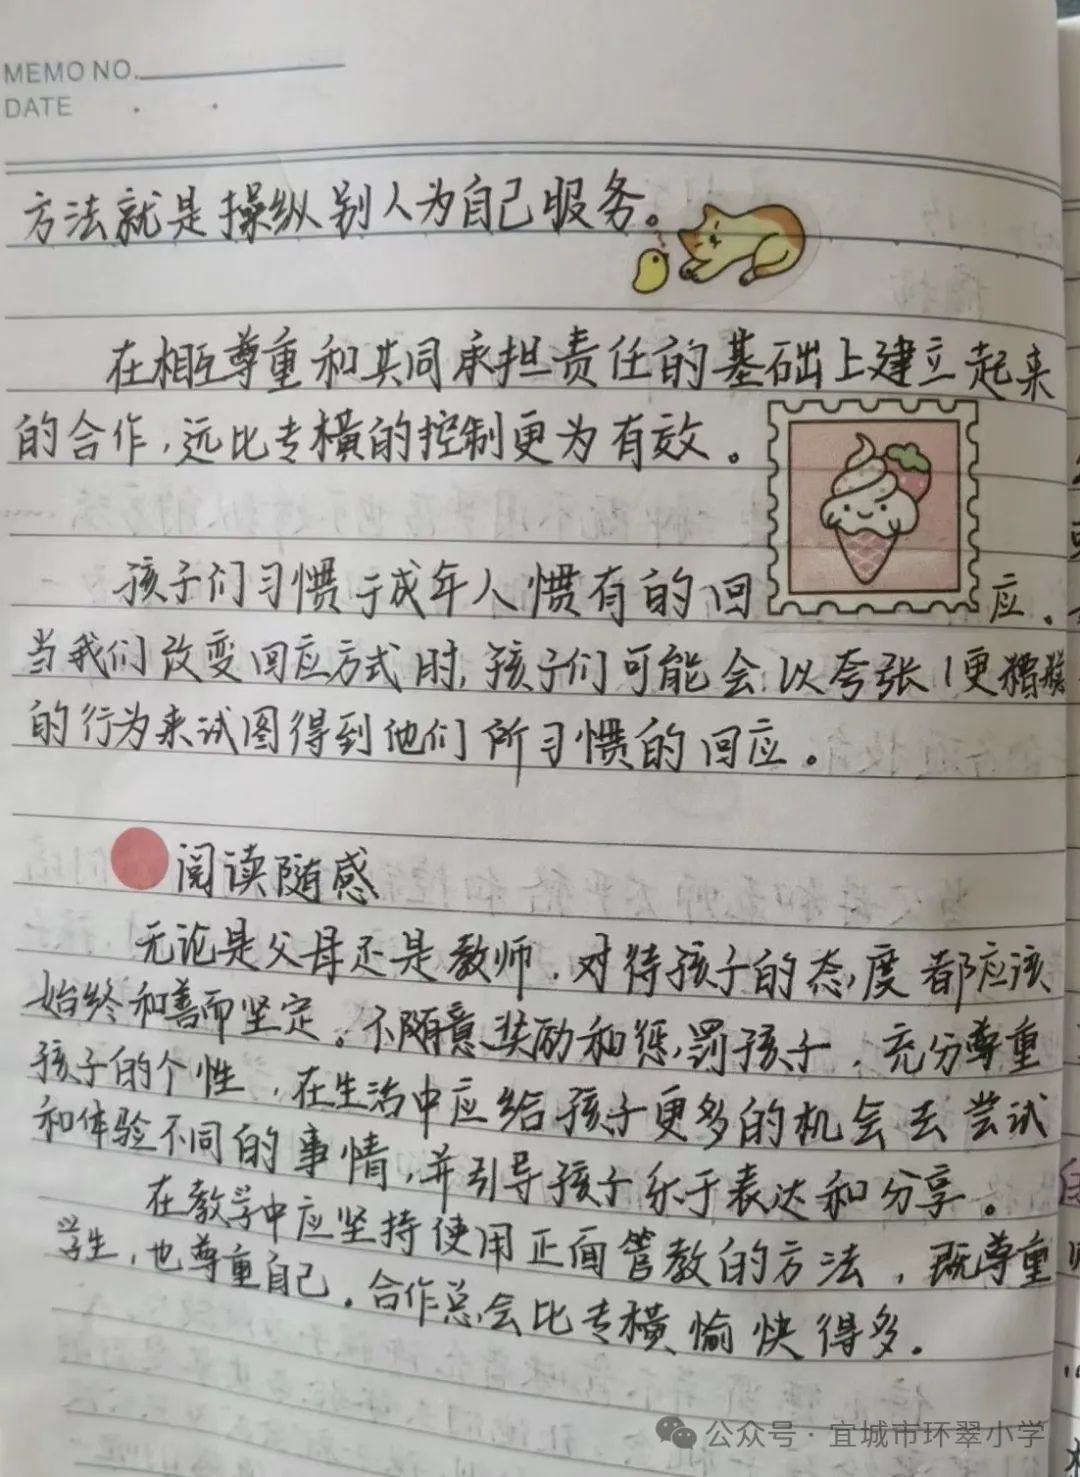 MEMO NO.
DATE
方法就是操纵别人为自己服务。
在相互尊重和共同承担责任的基础上建立起来
的合作，远比专横的控制更为有效。
孩子们习惯于成年人惯有的回应。
当我们改变回应方式时，孩子们可能会以夸张(更糟糕
的行为来试图得到他们所习惯的回应。
阅读随感
无论是父母还是教师，对待孩子的态度都应该
始终和善而坚定。不随意奖励和惩罚孩子，充分尊重
孩子的个性，在生活中应给孩子更多的机会去尝试
和体验不同的事情，并引导孩子乐于表达和分享。
在教学中应坚持使用正面管教的方法，既尊重
学生，也尊重自己。合作总会比专横愉快得多。
公众号·宜城市环翠小学